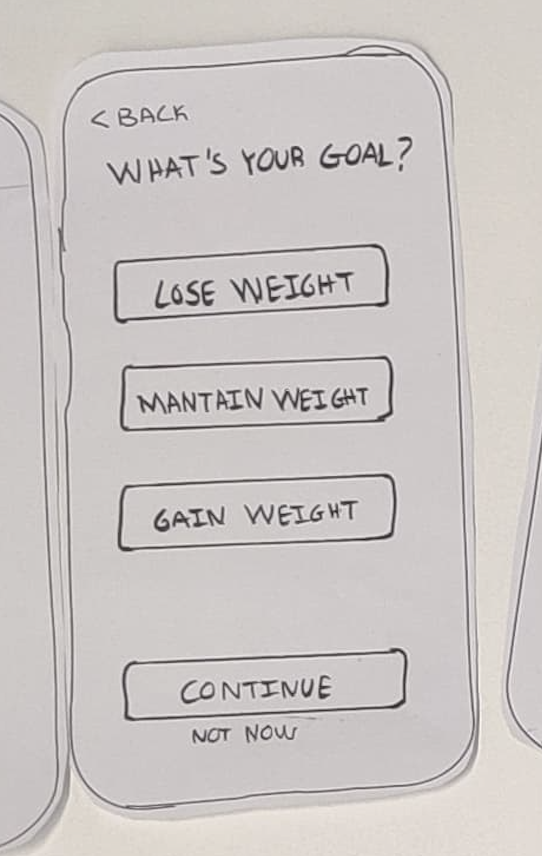 < BACK
WHAT'S YOUR GOAL?
LOSE WEIGHT
MANTAIN WEIGHT
GAIN WEIGHT
CONTINUE
NOT NOW